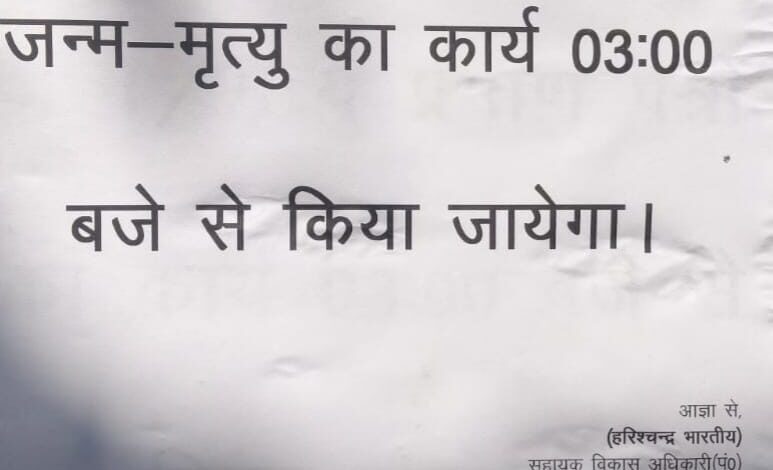 जन्म–मृत्यु का कार्य 03:00
बजे से किया जायेगा।
आज्ञा से,
(हरिश्चन्द्र भारतीय)
सहायक विकास अधिकारी(पं0)